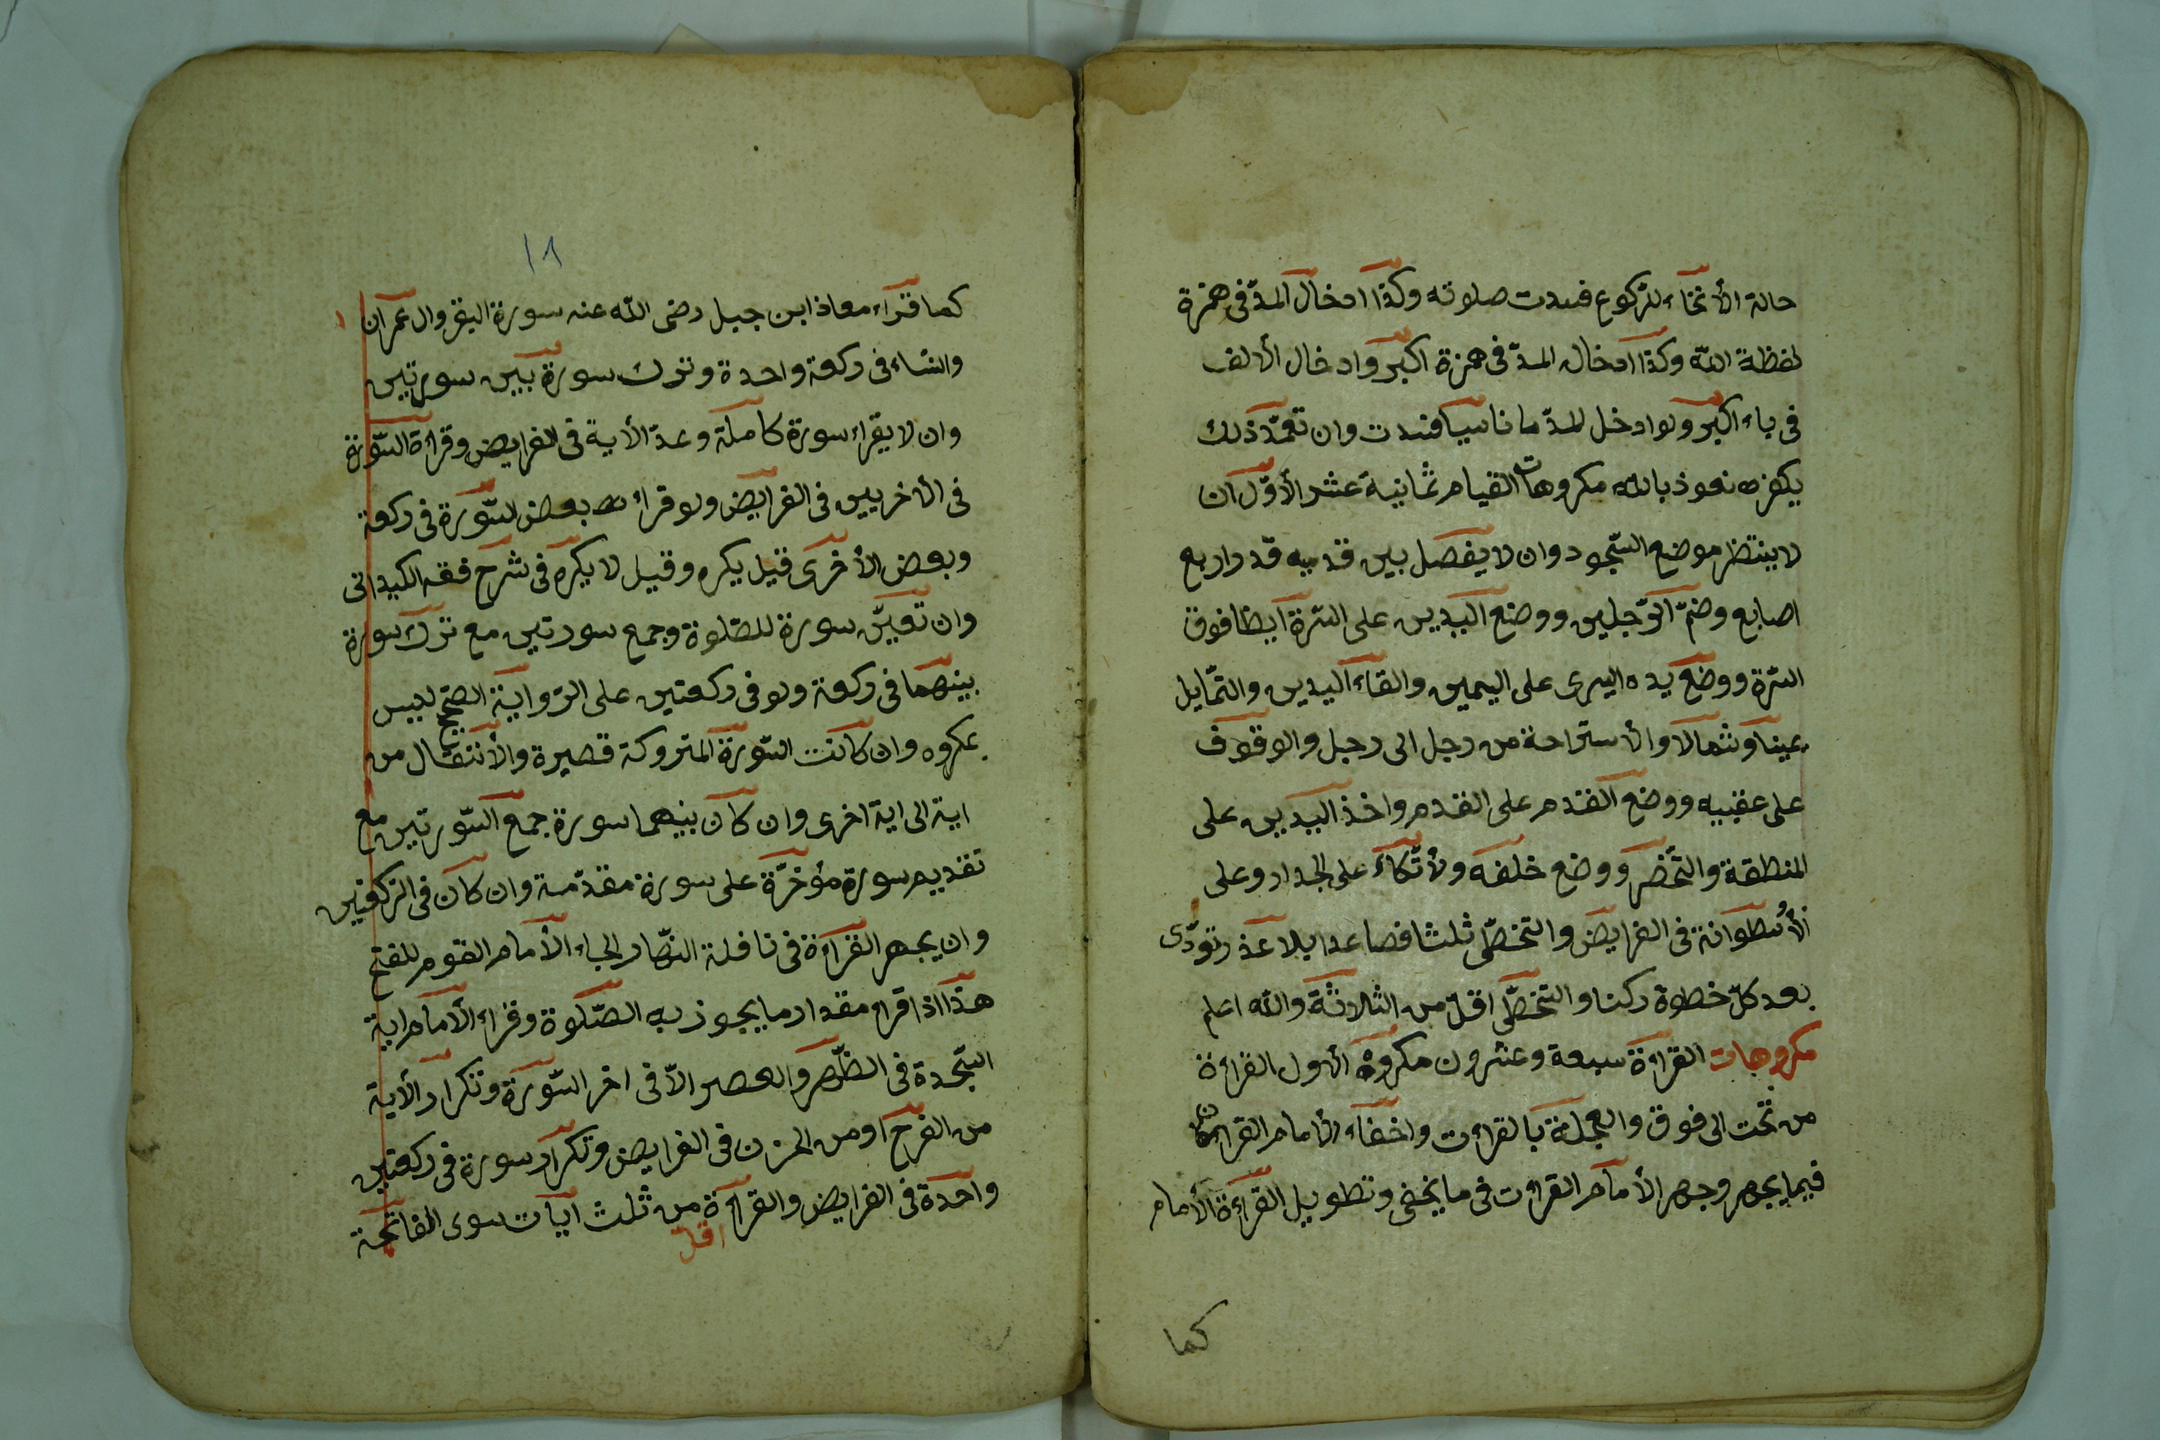 حالة الأنحناء للركوع فسدت صلوته وكذا ادخال المدّ فى همزة
لفظة اللّه وكذا ادخال المدّ فى همزة اكبر وادخال الألف
فى باء اكبر ولو ادخل المدّ ما ناسيا فسدت وان تعمّد ذلك
يكفر نعوذ باللّه مكروهات القيام ثمانية عشر الأوّل ان
لا ينتظر موضع السّجود وان لا يفصل بين قدميه قدر اربع
اصابع وضمّ الرّجلين ووضع اليدين على السّرة ايضا فوق
السّرة ووضع يده اليسرى على اليمين والقاء اليدين والتّمايل
يمينا وشمالا والأستراحة من رجل الى رجل والوقوف
على عقبيه ووضع القدم على القدم واخذ اليدين على
المنطقة والتّخصّر ووضع خلفه والأتّكاء على الجدار وعلى
الأسطوانة فى الفرايض والتخطّى ثلثا فصاعدا بلا عذر تودّى
بعد كلّ خطوة ركنا والتخطّى اقلّ من الثلاثة واللّه اعلم
مكروهات القراءة سبعة وعشرون مكروه الأول القراءة
من تحت الى فوق والعجلة بالقراءت واخفاء الأمام القراءت
فيما يجهر وجهر الأمام القراءت فى ما يخفى وتطويل القراءة الأمام
كما
١٨
كما قراء معاذ ابن جبل رضى اللّه عنه سورة البقر وال عمران
والنساء فى ركعة واحدة وترك سورة بين سورتين
وان لا يقراء سورة كاملة وعدّ الأية فى الفرايض وقراءة السّورة
فى الأخريين فى الفرايض ولو قراء بعض السّورة فى ركعة
وبعض الأخرى قيل يكره وقيل لا يكره فى شرح فقه الكيدانى
وان تعيّن سورة للصّلوة وجمع سورتين مع ترك سورة
بينهما فى ركعة ولو فى ركعتين على الرّواية الصّحيح ليس
بمكروه وان كانت السّورة المتروكة قصيرة والأنتقال من
اية الى اية اخرى وان كان بينهما سورة جمع السّورتين مع
تقديم سورة مؤخّرة على سورة مقدّمة وان كان فى الرّكعتين
وان يجهر القراءة فى نافلة النّهار الجاء الأمام القوم للفتح
هذا اذا قراء مقدار ما يجوز به الصّلوة وقراء الأمام اية
السّجدة فى الظّهر والعصر الاّ فى اخر السّورة وتكرار الأية
من الفرح او من الحزن فى الفرايض وتكرار سورة فى ركعتين
واحدة فى الفرايض والقراءة من ثلث ايات سوى الفاتحة
اقلّ